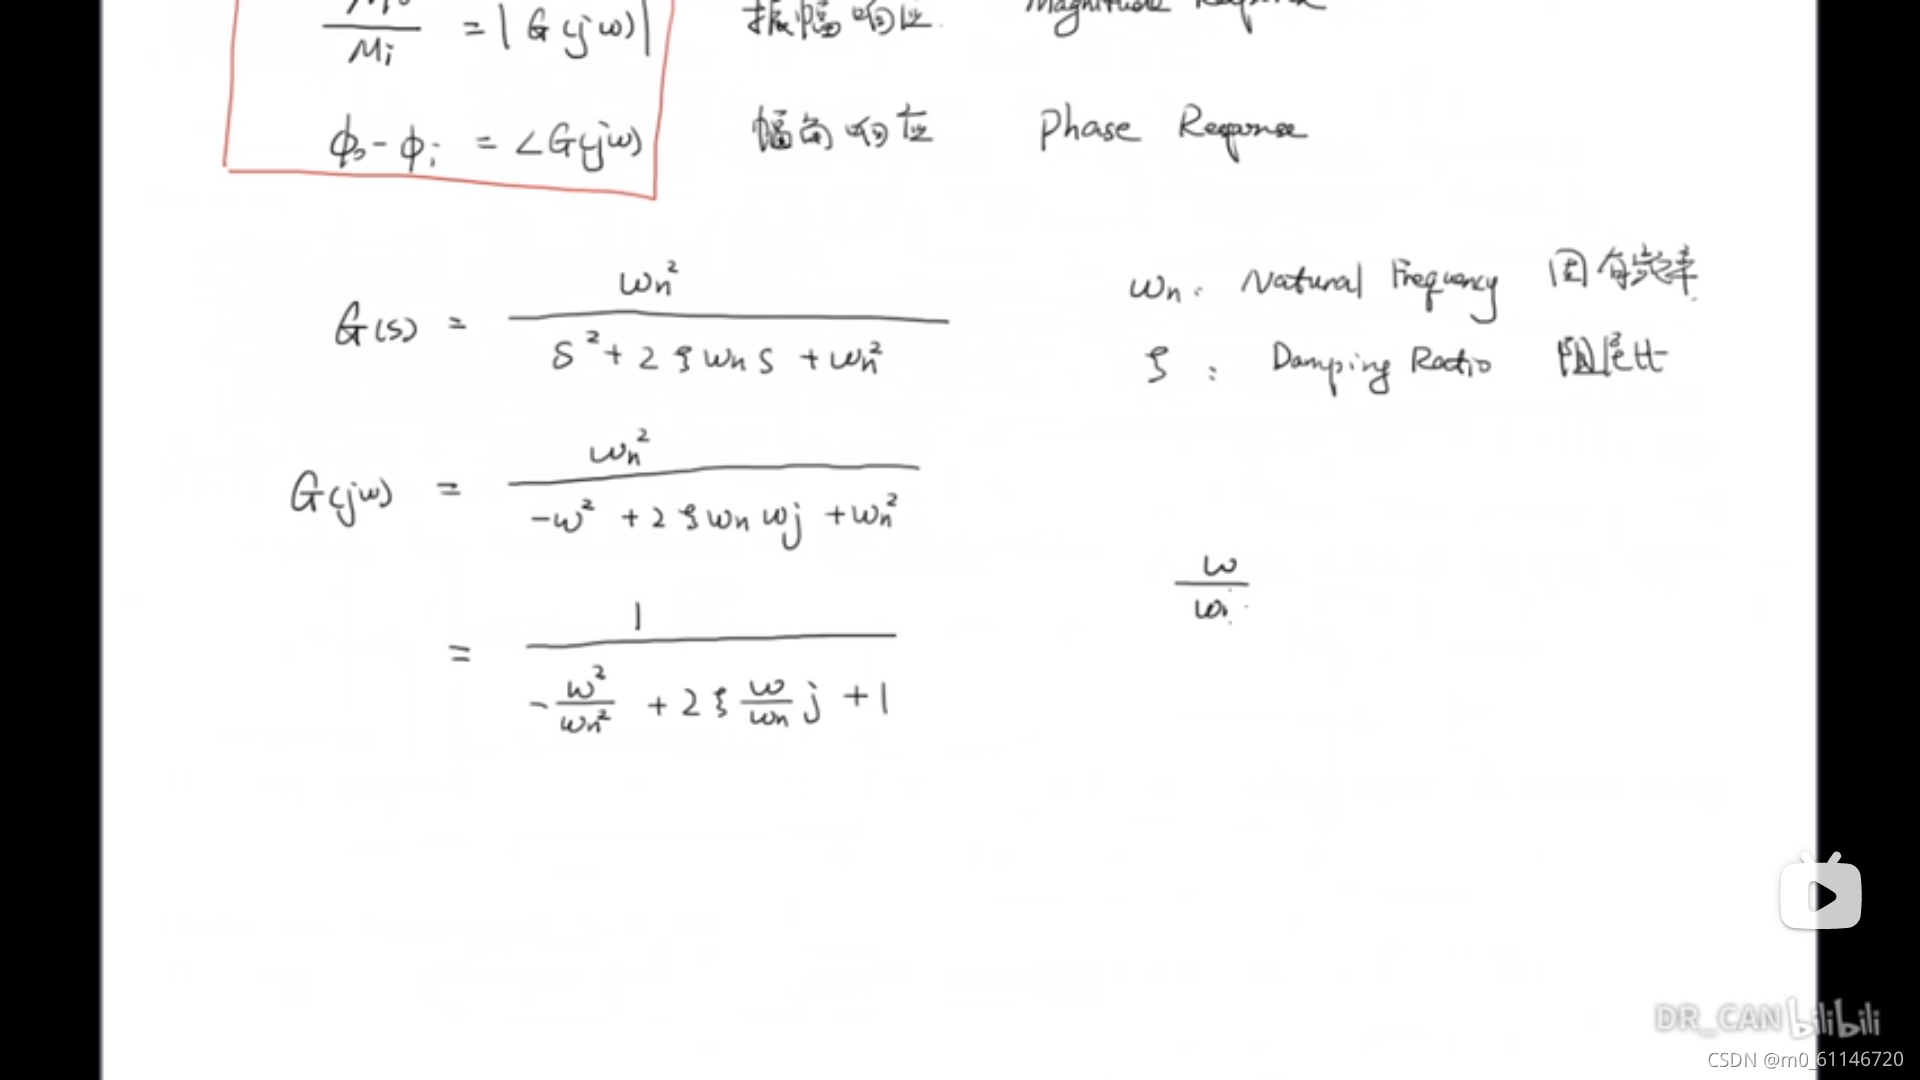 Mo/Mi = |G(jω)| 振幅响应 Magnitude Response
ϕo - ϕi = ∠G(jω) 幅角响应 Phase Response
G(s) = ωn² / (s² + 2ζωn s + ωn²)
ωn: Natural Frequency 固有频率
ζ: Damping Ratio 阻尼比
G(jω) = ωn² / (-ω² + 2ζωn ωj + ωn²)
ω/ω
= 1 / (-ω²/ωn² + 2ζ ω/ωn j + 1)
DR_CAN bilibili
CSDN @m0_61146720